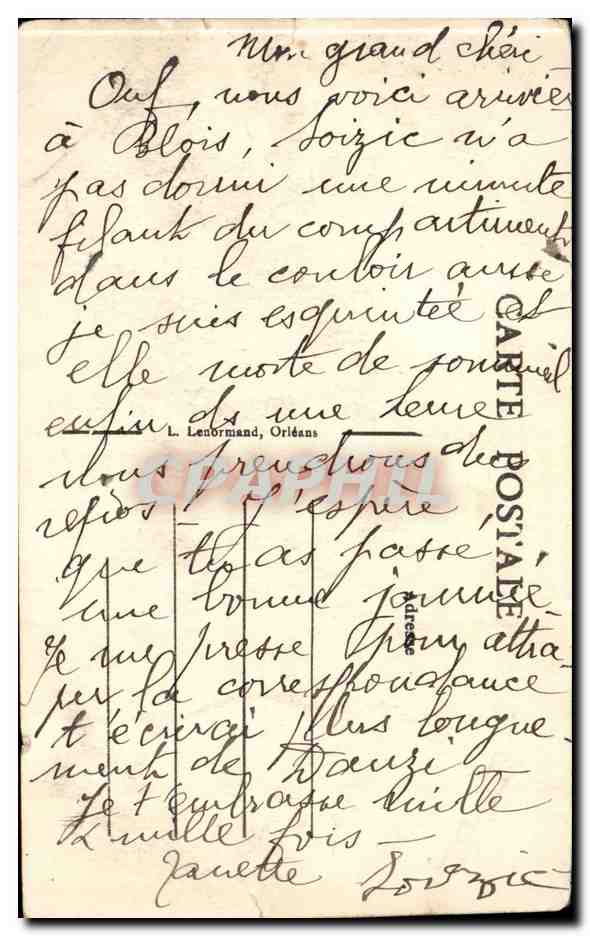 Mon grand chéri
Ouf, nous voici arrivées
à Blois, Soizic n'a
pas dormi une minute
filant du compartiment
dans le couloir aussi
je suis esquintée et
elle morte de sommeil
enfin ds une heure
L. Lenormand, Orléans
nous prendrons du
repos - J'espère
que tu as passé
une bonne journée -
Je me presse pour attra-
per la correspondance
t'écrirai plus longue-
ment de Dauzi
Je t'embrasse mille
& mille fois -
Janette Soizic
CARTE POSTALE
Adresse
CPAPHIL